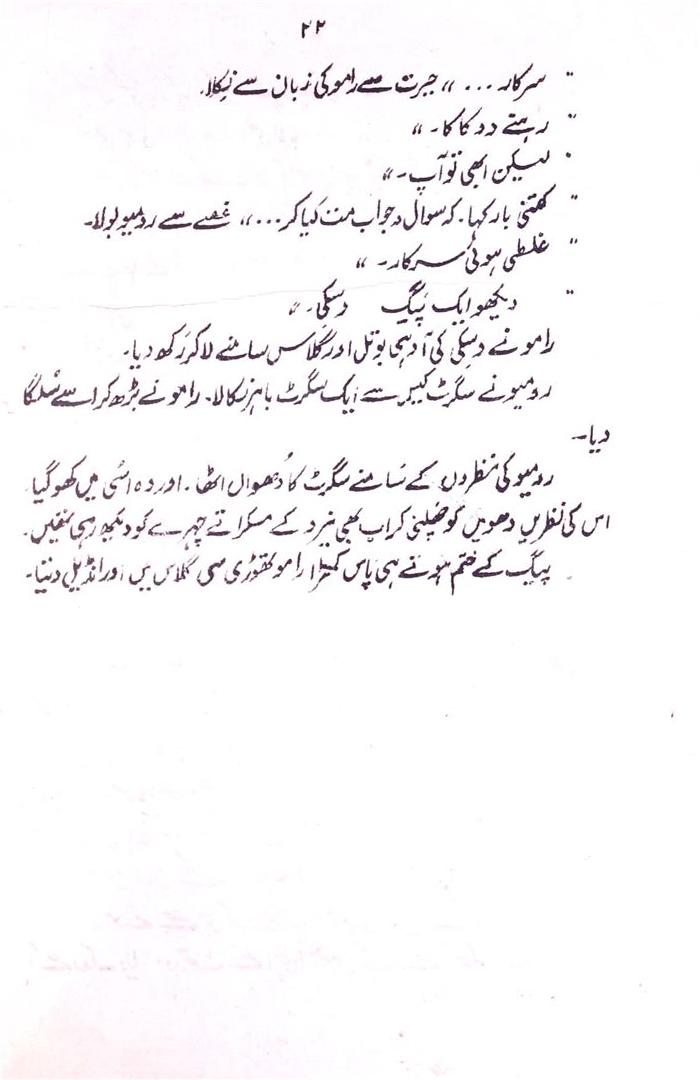 ۲۲
" سرکار ... " حیرت سے رامو کی زبان سے نکلا۔
" رہنے دو کاکا۔ "
" لیکن ابھی تو آپ۔ "
" کتنی بار کہا۔ کہ سوال و جواب مت کیا کر ... " غصے سے رومیو بولا۔
" غلطی ہوئی سرکار۔ "
" دیکھو ایک پیگ وسکی۔ "
رامو نے وسکی کی آدہی بوتل اور گلاس سامنے لا کر رکھ دیا۔
رومیو نے سگرٹ کیس سے ایک سگرٹ باہر نکالا۔ رامو نے بڑھ کر اسے سُلگا
دیا۔
رومیو کی نظروں کے سَامنے سگرٹ کا دُھواں اٹھا۔ اور وہ اسُی میں کھو گیا۔
اس کی نظریں دھویں کو چھلنی کر اب بھی نیرو کے مسکراتے چہرے کو دیکھ رہی تھیں۔
پیگ کے ختم ہوتے ہی پاس کھڑا رامو تھوڑی سی گلاس یں اور انڈیل دیتا۔